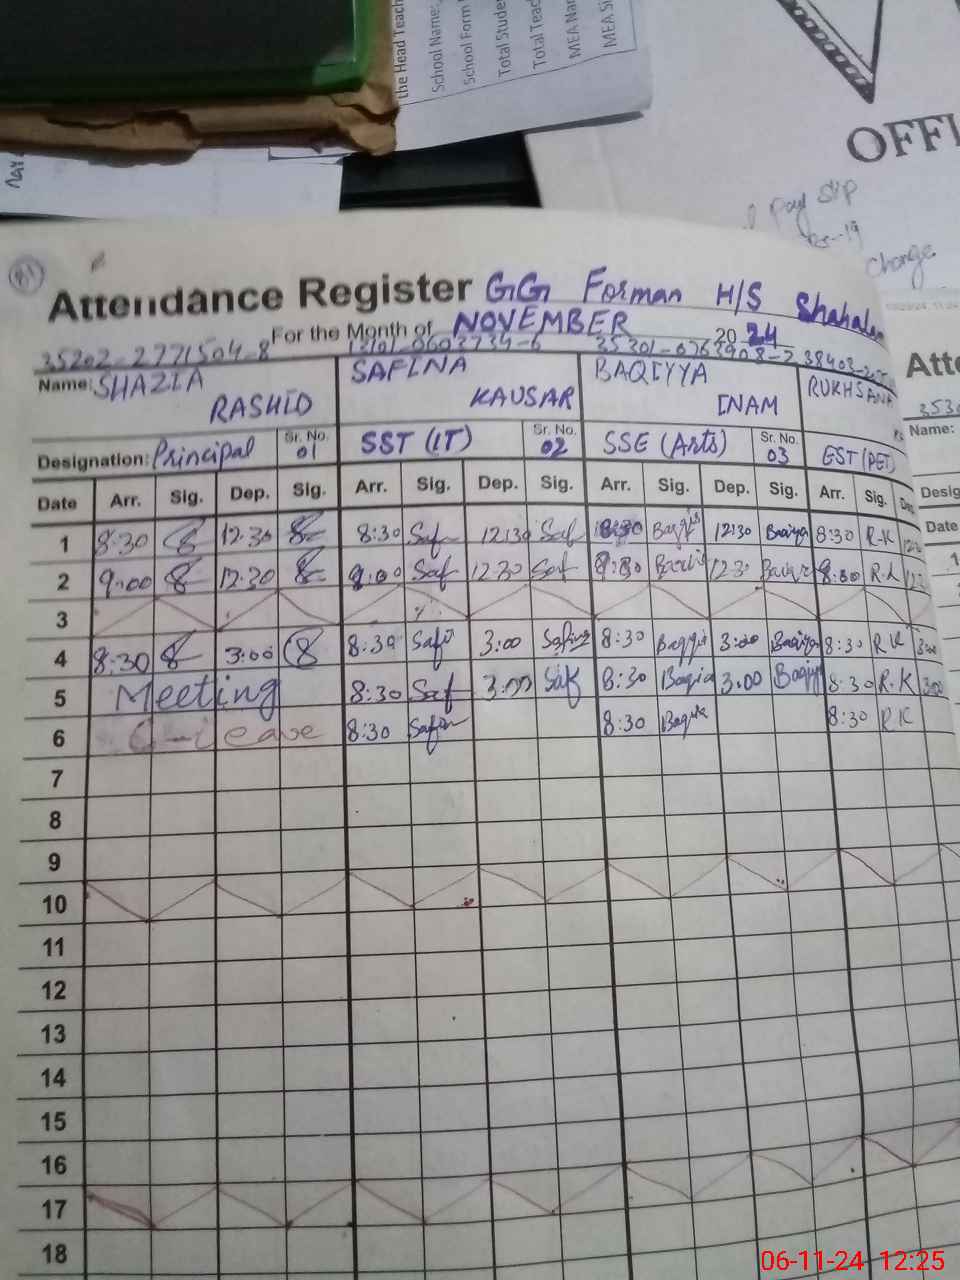 the Head Teach
School Name:
School Form
Total Stude
Total Teac
MEA Nar
MEA Si
OFFI
Pay Slip
Change
Attendance Register GG Forman H/S Shahalam
For the Month of NOVEMBER 2024
35202-2771504-8
Name: SHAZIA RASHID SAFINA KAUSAR BAQIYYA INAM RUKHSANA
Designation: Principal Sr. No. 01 SST (IT) Sr. No. 02 SSE (Arts) Sr. No. 03 EST (PET)
Date Arr. Sig. Dep. Sig. Arr. Sig. Dep. Sig. Arr. Sig. Dep. Sig. Arr. Sig. Dep.
1 8:30 12:30 8:30 Saf 12:30 Saf 8:30 12:30 8:30 R.K
2 9:00 12:30 9:00 Saf 12:30 Saf 12:30 R.K
3
4 8:30 3:00 8:30 Safi 3:00 Safina 8:30 3:00 8:30 R K 3:00
5 Meeting 8:30 Saf 3:00 Saf 8:30 3:00 8:30 R.K 3:00
6 Leave 8:30 8:30 8:30 RK
7
8
9
10
11
12
13
14
15
16
17
18
Atte
Name:
Desig
Date
06-11-24 12:25